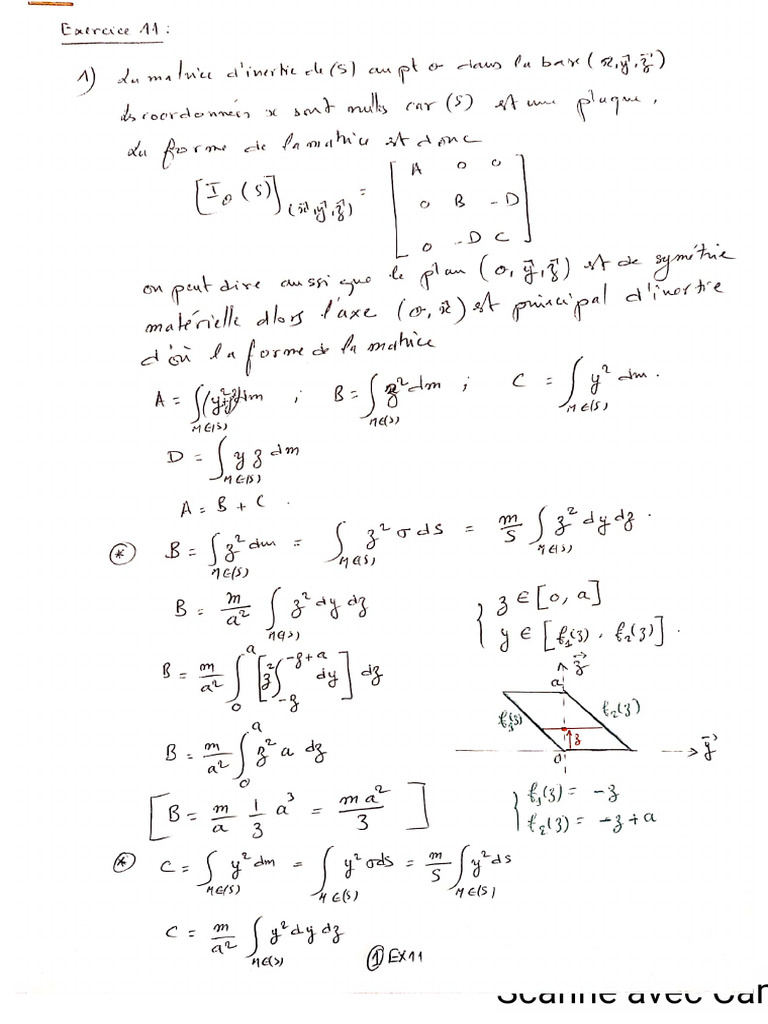 Exercice 11 :
1) La matrice d'inertie de (S) au pt O dans la base (x⃗, y⃗, z⃗)
Les coordonnées x sont nulles car (S) est une plaque,
La forme de la matrice est donc
[I₀(S)](x⃗,y⃗,z⃗) = [A 0 0
0 B -D
0 -D C]
on peut dire aussi que le plan (O, y⃗, z⃗) est de symétrie
matérielle alors l'axe (O, x⃗) est principal d'inertie
d'où la forme de la matrice
A = ∫M∈(S) (y²+z²)dm ; B = ∫M∈(S) z² dm ; C = ∫M∈(S) y² dm.
D = ∫M∈(S) y z dm
A = B + C.
* B = ∫M∈(S) z² dm = ∫M∈(S) z² σ dS = m/S ∫M∈(S) z² dy dz.
B = m/a² ∫M∈(S) z² dy dz
{ z ∈ [0, a]
y ∈ [f₁(z), f₂(z)].
B = m/a² ∫₀ᵃ [z² ∫₋z^(-z+a) dy] dz
z⃗
a
f₁(z)
f₂(z)
z
O
y⃗
B = m/a² ∫₀ᵃ z² a dz
[B = m/a 1/3 a³ = ma²/3]
{ f₁(z) = -z
f₂(z) = -z + a
* C = ∫M∈(S) y² dm = ∫M∈(S) y² σds = m/S ∫M∈(S) y² ds
C = m/a² ∫M∈(S) y² dy dz
① EX11